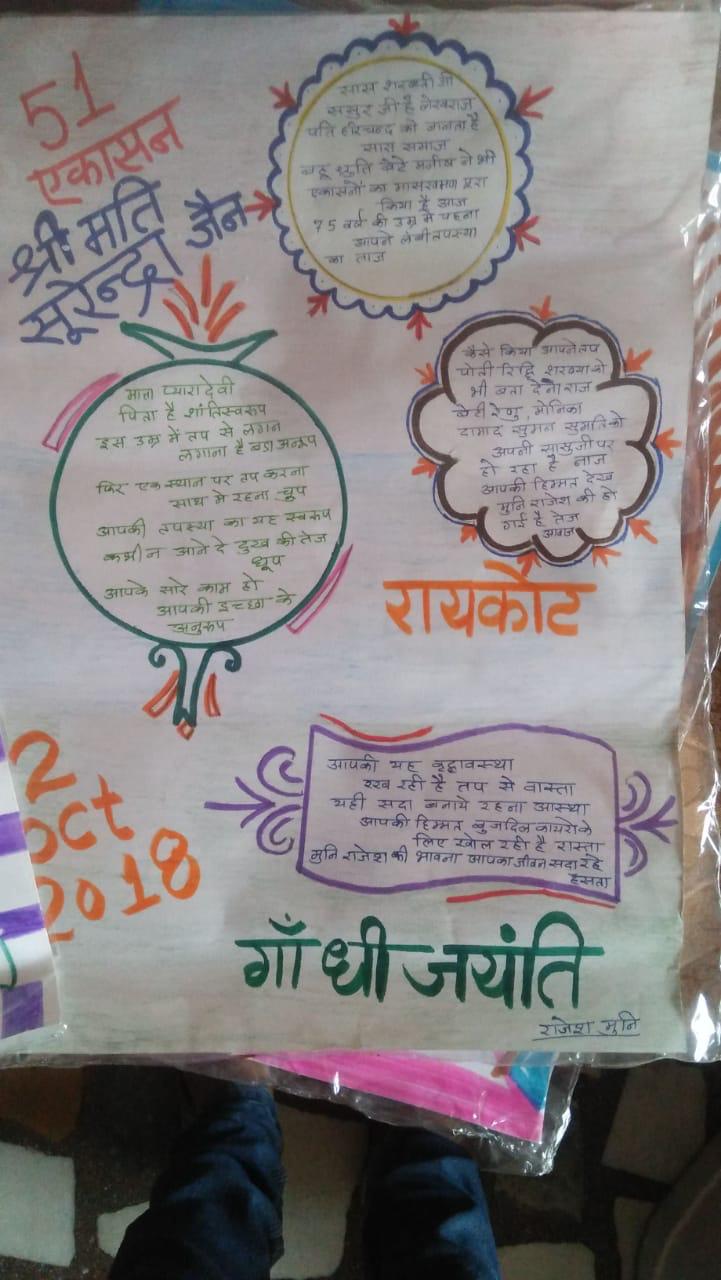 51
एकासन
श्री मति
सूरेन्द्रा जैन
सास शरबती जी
ससुर जी है लेखराज
पति हरिचन्द को जानता है
सारा समाज
बहू श्रुति बेटे मनीष ने भी
एकासनों का मासखमण पूरा
किया है आज
75 वर्ष की उम्र में पहना
आपने लंबी तपस्या
का ताज
कैसे किया आपने तप
पोती रिद्धि शरण्या को
भी बता देना राज
बेटी रेणु, मोनिका
दामाद सुमन सुमति को
अपनी सासुजी पर
हो रहा है नाज
आपकी हिम्मत देख
मुनि राजेश की हो
गई है तेज
आवाज
माता प्यारा देवी
पिता है शांतिस्वरूप
इस उम्र में तप से लगन
लगाना है बड़ा अनूप
फिर एक स्थान पर तप करना
साथ मे रहना चुप
आपकी तपस्या का यह स्वरूप
कभी न आने दे दुख की तेज
धूप
आपके सारे काम हो
आपकी इच्छा के
अनुरूप
रायकोट
2
oct
2018
आपकी यह वृद्धावस्था
रख रही है तप से वास्ता
यही सदा बनाये रहना आस्था
आपकी हिम्मत बुजदिल कायरो के
लिए खोल रही है रास्ता
मुनि राजेश की भावना आपका जीवन सदा रहे
हंसता
गाँधी जयंति
राजेश मुनि